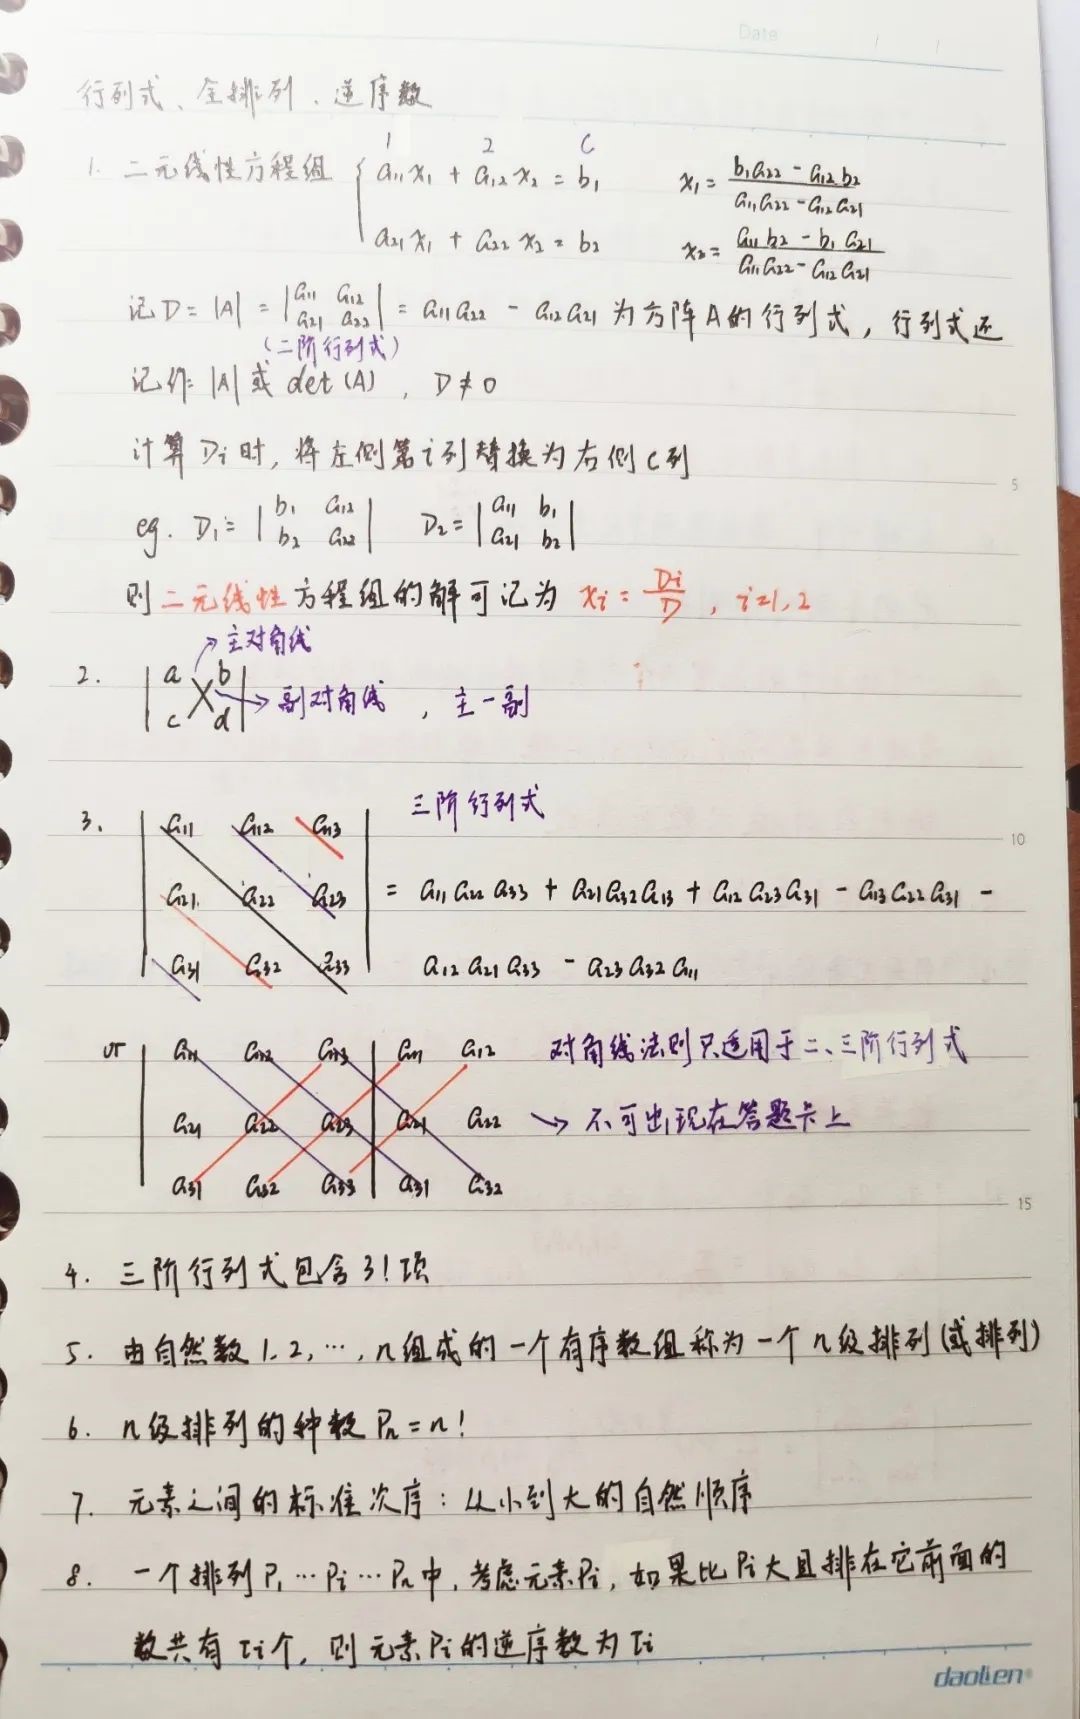 Date / /
行列式、全排列、逆序数
1 2 C
1. 二元线性方程组 { a₁₁x₁ + a₁₂x₂ = b₁ x₁ = (b₁a₂₂ - a₁₂b₂)/(a₁₁a₂₂ - a₁₂a₂₁)
a₂₁x₁ + a₂₂x₂ = b₂ x₂ = (a₁₁b₂ - b₁a₂₁)/(a₁₁a₂₂ - a₁₂a₂₁)
记D = |A| = |a₁₁ a₁₂; a₂₁ a₂₂| = a₁₁a₂₂ - a₁₂a₂₁ 为方阵A的行列式，行列式还
(二阶行列式)
记作 |A| 或 det(A)，D ≠ 0
计算 Dᵢ 时，将左侧第i列替换为右侧C列
5
eg. D₁ = |b₁ a₁₂; b₂ a₂₂| D₂ = |a₁₁ b₁; a₂₁ b₂|
则二元线性方程组的解可记为 xᵢ = Dᵢ/D，i=1,2
主对角线
2. |a b; c d| → 副对角线，主-副
3. 三阶行列式
a₁₁ a₁₂ a₁₃
10
a₂₁ a₂₂ a₂₃ = a₁₁a₂₂a₃₃ + a₂₁a₃₂a₁₃ + a₁₂a₂₃a₃₁ - a₁₃a₂₂a₃₁ -
a₃₁ a₃₂ a₃₃ a₁₂a₂₁a₃₃ - a₂₃a₃₂a₁₁
or a₁₁ a₁₂ a₁₃ | a₁₁ a₁₂ 对角线法则只适用于二、三阶行列式
a₂₁ a₂₂ a₂₃ | a₂₁ a₂₂ → 不可出现在答题卡上
a₃₁ a₃₂ a₃₃ | a₃₁ a₃₂
15
4. 三阶行列式包含3!项
5. 由自然数1,2,…,n组成的一个有序数组称为一个n级排列(或排列)
6. n级排列的种数Pₙ=n!
7. 元素之间的标准次序：从小到大的自然顺序
8. 一个排列P₁…Pᵢ…Pₙ中，考虑元素Pᵢ，如果比Pᵢ大且排在它前面的
数共有τᵢ个，则元素Pᵢ的逆序数为τᵢ
daolien